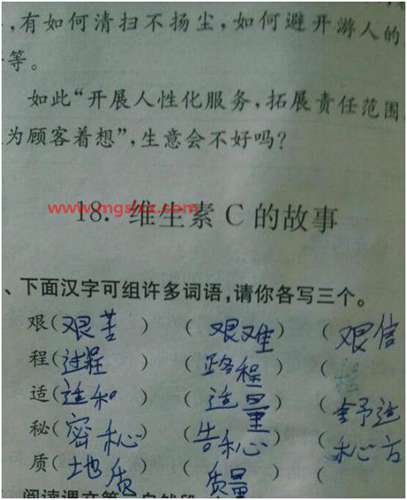 ，有如何清扫不扬尘，如何避开游人的
等。
如此“开展人性化服务，拓展责任范围
为顾客着想”，生意会不好吗？
www.mgslxz.com
18. 维生素 C 的故事
、下面汉字可组许多词语，请你各写三个。
艰（艰苦）（艰难）（艰信
程（过程）（路程）（
适（适和）（适量）（舒适
秘（密秘）（告秘）（秘方
质（地质）（质量）（
阅读课文第